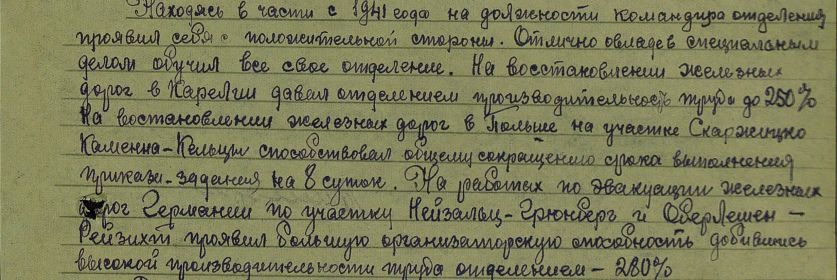 Находясь в части с 1941 года на должности командира отделения
проявил себя с положительной стороны. Отлично овладев специальным
делом обучил все свое отделение. На восстановлении железных
дорог в Карелии давал отделением производительность труда до 250%
На востановлении железных дорог в Польше на участке Скаржицко
Каменна-Кельцы способствовал общему сокращению срока выполнения
приказа-задания на 8 суток. На работах по эвакуации железных
дорог Германии по участку Нейзальц-Грюнберг и Оберлешен-
Рейзихт проявил большую организаторскую способность добившись
высокой производительности труда отделением - 280%